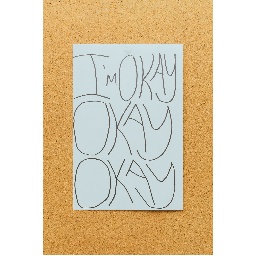 I'M OKAY
OKAY
OKAY